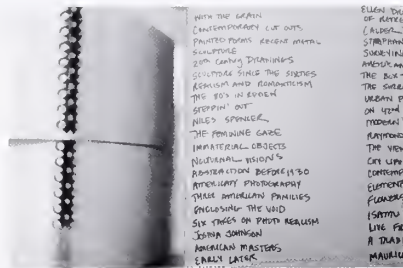 WITH THE GRAIN
CONTEMPORARY CUT OUTS
PAINTED FORMS RECENT METAL
SCULPTURE
20TH Century DRAWINGS
SCULPTURE SINCE THE SIXTIES
REALISM AND ROMANTICISM
THE 80'S IN REVIEW
STEPPIN' OUT
NILES SPENCER
THE FEMININE GAZE
IMMATERIAL OBJECTS
NOCTURNAL VISIONS
ABSTRACTION BEFORE 1930
AMERICAN PHOTOGRAPHY
THREE AMERICAN FAMILIES
ENCLOSING THE VOID
SIX TAKES ON PHOTO REALISM
JOSHUA JOHNSON
AMERICAN MASTERS
EARLY LATER
ELLEN
OF
CALDER
STEPHAN
THE
THE
URBAN
ON 42ND
MODERN
RAYMOND
THE
CITY
CONTEMP
ELEMENT
FLOWERS
ISAMU
LIVE
A TRAD